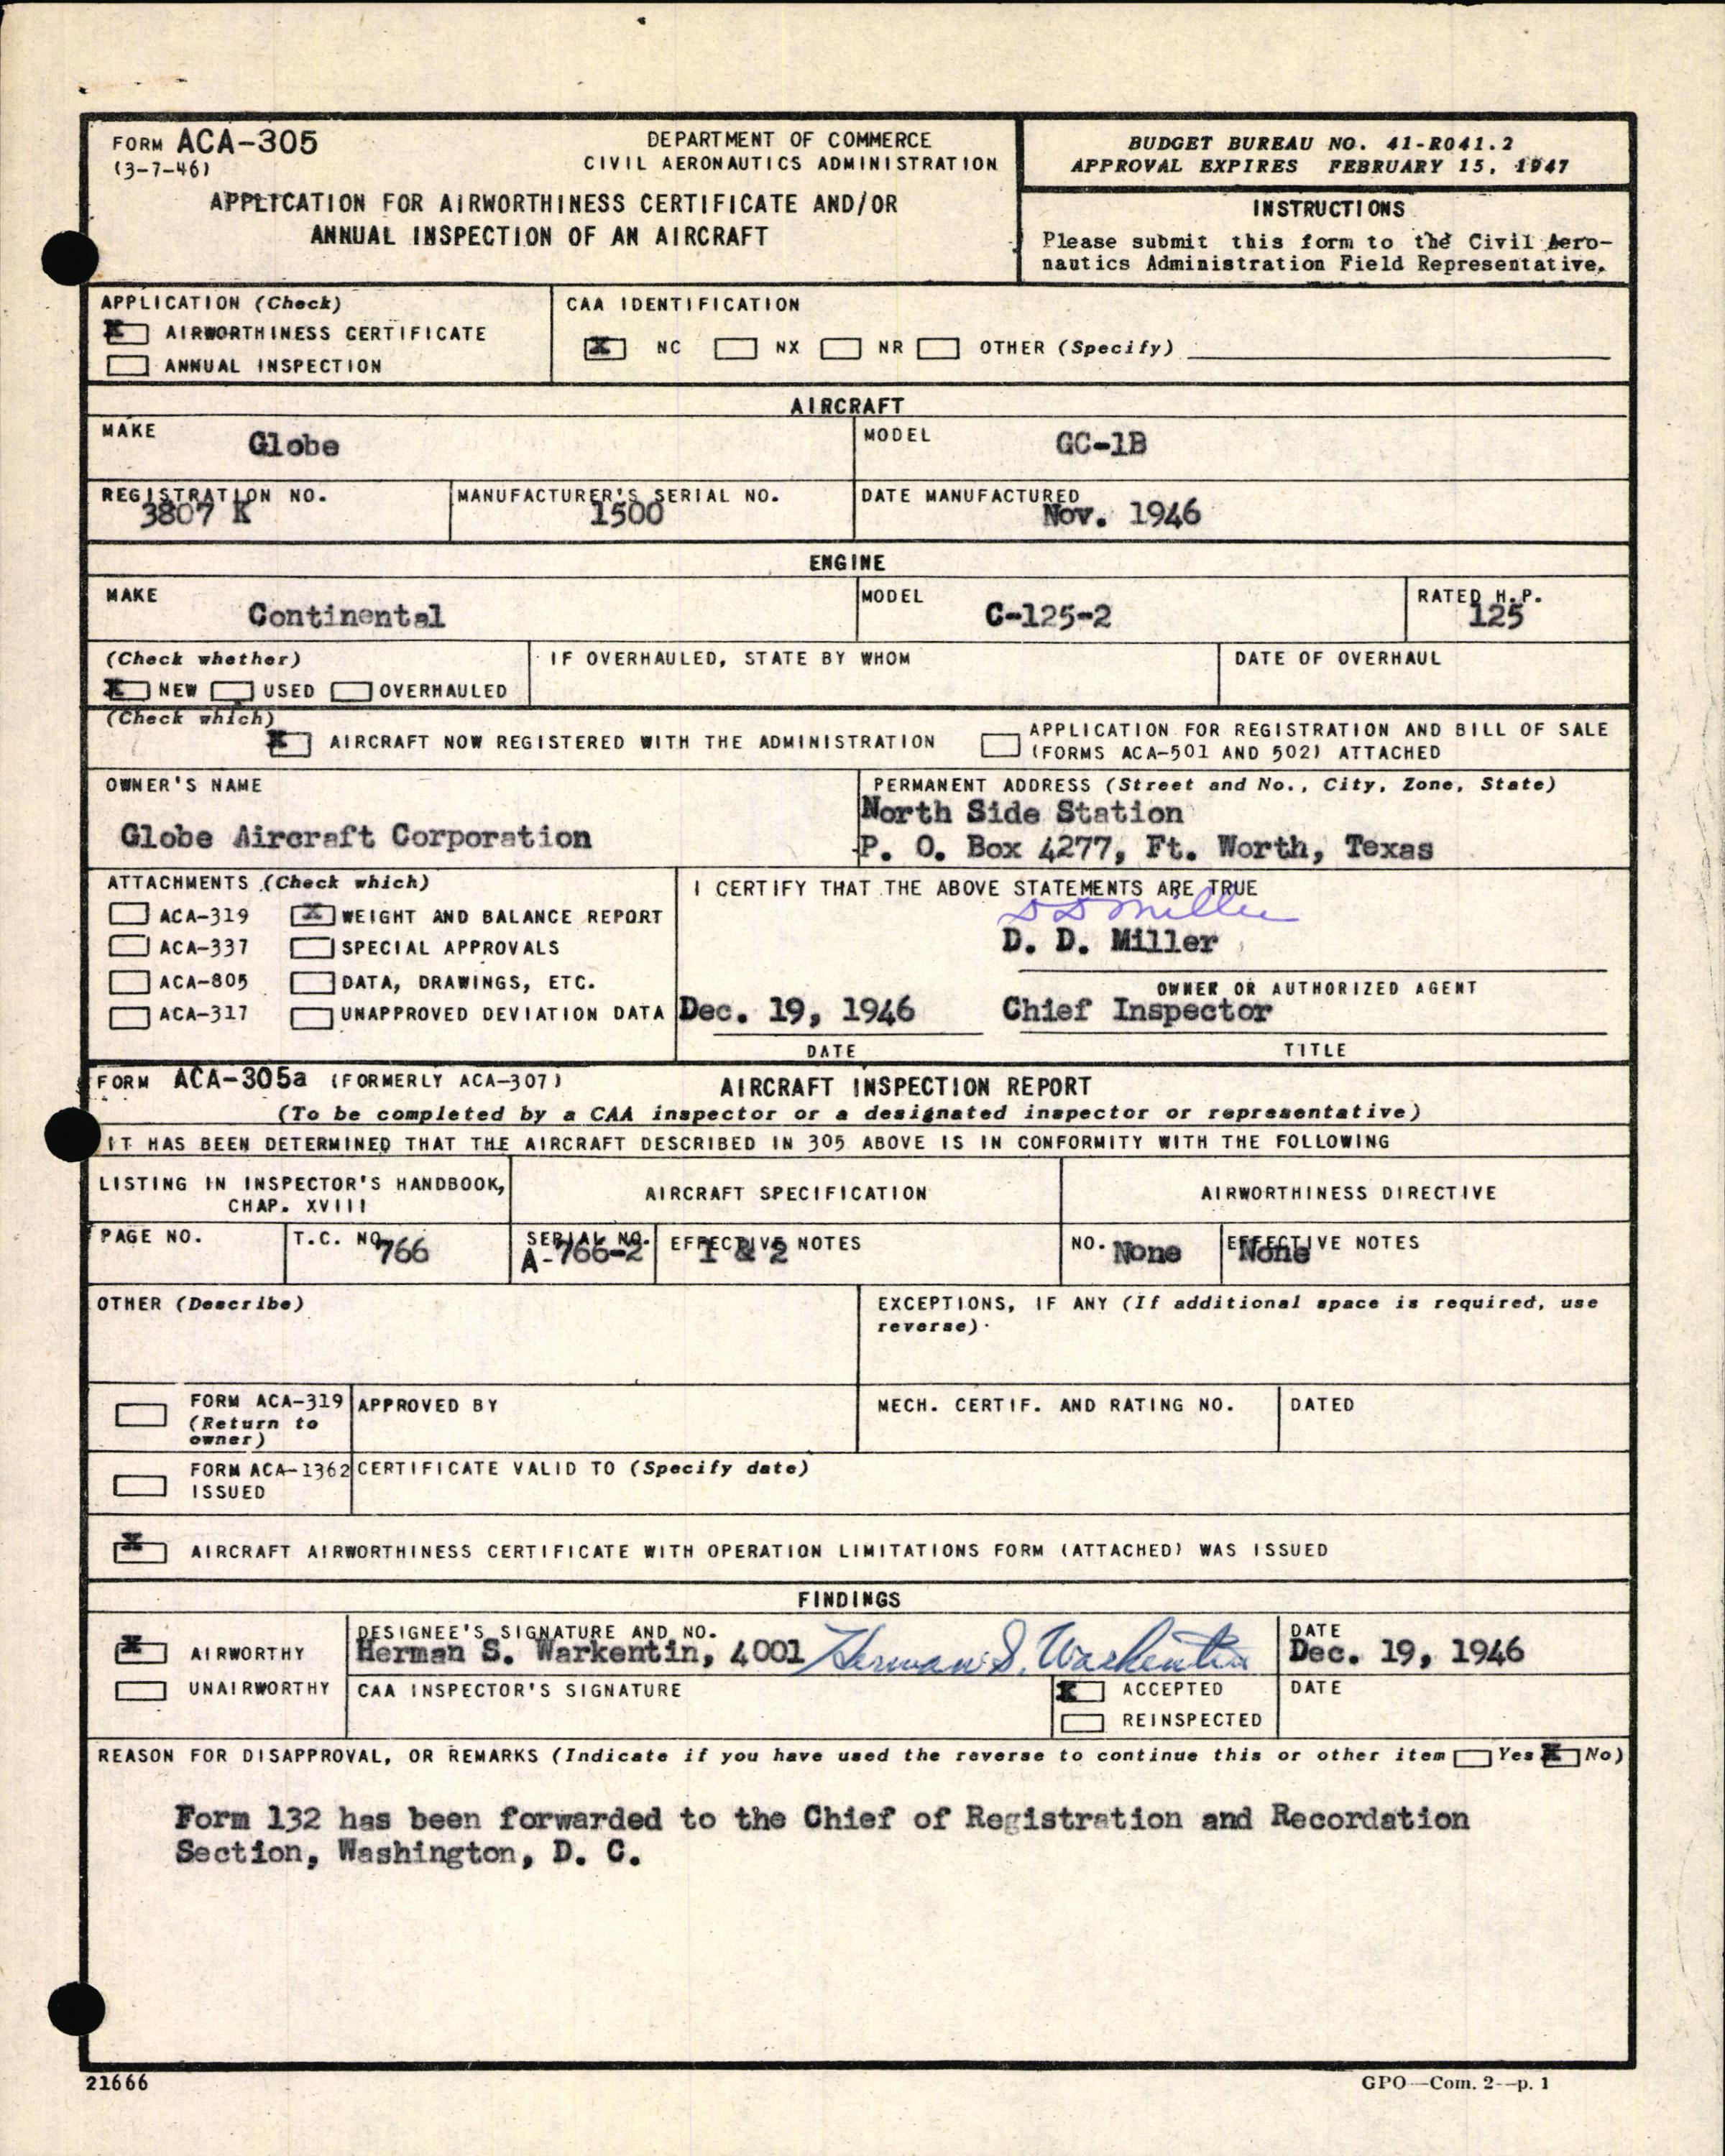 FORM ACA-305
(3-7-46)
DEPARTMENT OF COMMERCE
CIVIL AERONAUTICS ADMINISTRATION
APPLICATION FOR AIRWORTHINESS CERTIFICATE AND/OR
ANNUAL INSPECTION OF AN AIRCRAFT
BUDGET BUREAU NO. 41-R041.2
APPROVAL EXPIRES FEBRUARY 15, 1947
INSTRUCTIONS
Please submit this form to the Civil Aero-
nautics Administration Field Representative.
APPLICATION (Check)
X AIRWORTHINESS CERTIFICATE
ANNUAL INSPECTION
CAA IDENTIFICATION
X NC NX NR OTHER (Specify)
AIRCRAFT
MAKE Globe
MODEL GC-1B
REGISTRATION NO. 3807 K
MANUFACTURER'S SERIAL NO. 1500
DATE MANUFACTURED Nov. 1946
ENGINE
MAKE Continental
MODEL C-125-2
RATED H.P. 125
(Check whether)
X NEW USED OVERHAULED
IF OVERHAULED, STATE BY WHOM
DATE OF OVERHAUL
(Check which)
X AIRCRAFT NOW REGISTERED WITH THE ADMINISTRATION
APPLICATION FOR REGISTRATION AND BILL OF SALE
(FORMS ACA-501 AND 502) ATTACHED
OWNER'S NAME
Globe Aircraft Corporation
PERMANENT ADDRESS (Street and No., City, Zone, State)
North Side Station
P. O. Box 4277, Ft. Worth, Texas
ATTACHMENTS (Check which)
ACA-319 X WEIGHT AND BALANCE REPORT
ACA-337 SPECIAL APPROVALS
ACA-805 DATA, DRAWINGS, ETC.
ACA-317 UNAPPROVED DEVIATION DATA
I CERTIFY THAT THE ABOVE STATEMENTS ARE TRUE
D D Miller
D. D. Miller
OWNER OR AUTHORIZED AGENT
Dec. 19, 1946 Chief Inspector
DATE TITLE
FORM ACA-305a (FORMERLY ACA-307) AIRCRAFT INSPECTION REPORT
(To be completed by a CAA inspector or a designated inspector or representative)
IT HAS BEEN DETERMINED THAT THE AIRCRAFT DESCRIBED IN 305 ABOVE IS IN CONFORMITY WITH THE FOLLOWING
LISTING IN INSPECTOR'S HANDBOOK,
CHAP. XVIII
AIRCRAFT SPECIFICATION
AIRWORTHINESS DIRECTIVE
PAGE NO.
T.C. NO. 766
SERIAL NO. A-766-2
EFFECTIVE NOTES 1 & 2
NO. None
EFFECTIVE NOTES None
OTHER (Describe)
EXCEPTIONS, IF ANY (If additional space is required, use
reverse)
FORM ACA-319
(Return to
owner)
APPROVED BY
MECH. CERTIF. AND RATING NO.
DATED
FORM ACA-1362
ISSUED
CERTIFICATE VALID TO (Specify date)
X AIRCRAFT AIRWORTHINESS CERTIFICATE WITH OPERATION LIMITATIONS FORM (ATTACHED) WAS ISSUED
FINDINGS
X AIRWORTHY
UNAIRWORTHY
DESIGNEE'S SIGNATURE AND NO.
Herman S. Warkentin, 4001 Herman S. Warkentin
DATE
Dec. 19, 1946
CAA INSPECTOR'S SIGNATURE
X ACCEPTED
REINSPECTED
DATE
REASON FOR DISAPPROVAL, OR REMARKS (Indicate if you have used the reverse to continue this or other item Yes X No)
Form 132 has been forwarded to the Chief of Registration and Recordation
Section, Washington, D. C.
21666
GPO—Com. 2--p. 1